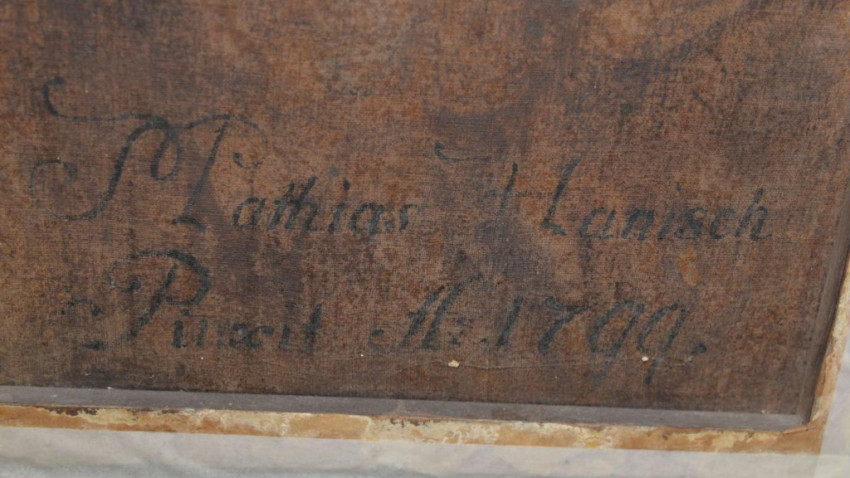 Mathias Hanisch
Pinxit A: 1799.